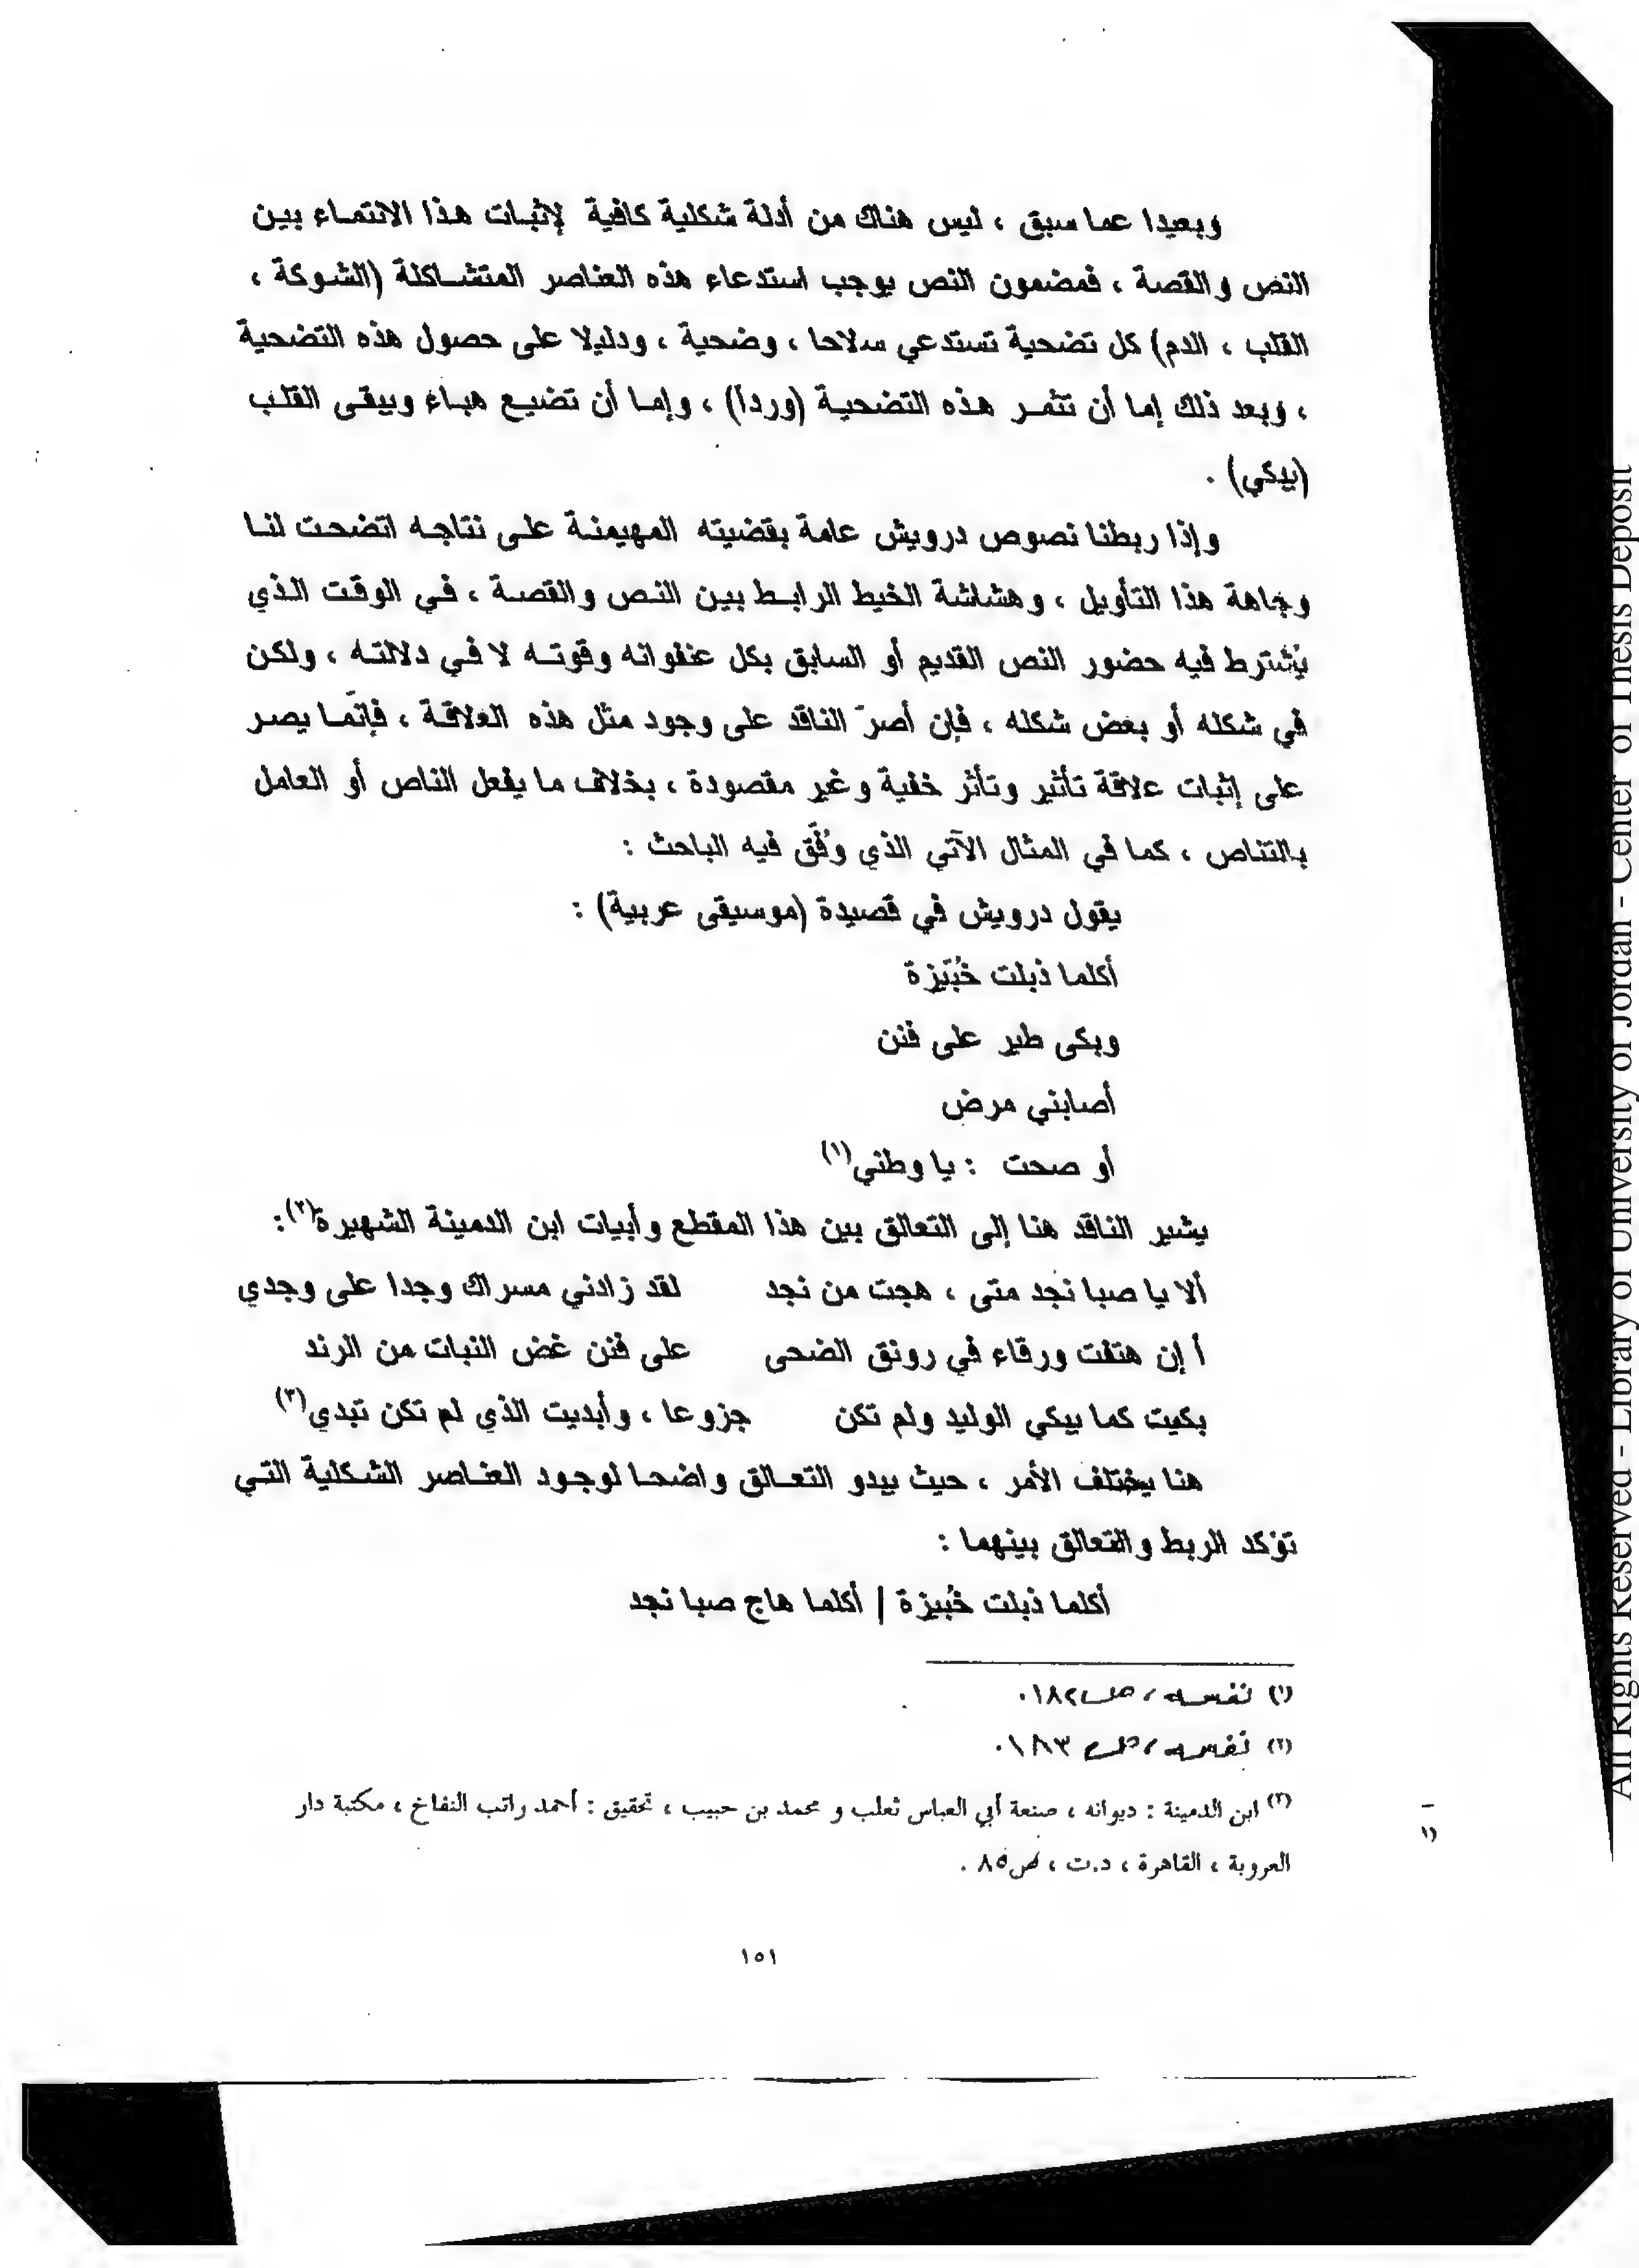 وبعيدا عما سبق ، ليس هناك من أدلة شكلية كافية لإثبات هذا الانتماء بين
النص والقصة ، فمضمون النص يوجب استدعاء هذه العناصر المتشاكلة (الشوكة ،
القلب ، الدم) كل تضحية تستدعي سلاحا ، وضحية ، ودليلا على حصول هذه التضحية
، وبعد ذلك إما أن تثمر هذه التضحية (ورداً) ، وإما أن تضيع هباءً ويبقى القلب
(يبكي) .
وإذا ربطنا نصوص درويش عامة بقضيته المهيمنة على نتاجه اتضحت لنا
وجاهة هذا التأويل ، وهشاشة الخيط الرابط بين النص والقصة ، في الوقت الذي
يُشترط فيه حضور النص القديم أو السابق بكل عنفوانه وقوته لا في دلالته ، ولكن
في شكله أو بعض شكله ، فإن أصرّ الناقد على وجود مثل هذه العلاقة ، فإنّما يصر
على إثبات علاقة تأثير وتأثر خفية وغير مقصودة ، بخلاف ما يفعل الناص أو العامل
بالتناص ، كما في المثال الآتي الذي وُفّق فيه الباحث :
يقول درويش في قصيدة (موسيقى عربية) :
أكلما ذبلت خُبّيزة
وبكى طير على فنن
أصابني مرض
أو صحت : يا وطني(١)
يشير الناقد هنا إلى التعالق بين هذا المقطع وأبيات ابن الدمينة الشهيرة(٢):
ألا يا صبا نجد متى ، هجت من نجد لقد زادني مسراك وجدا على وجدي
أ إن هتفت ورقاء في رونق الضحى على فنن غض النبات من الرند
بكيت كما يبكي الوليد ولم تكن جزوعا ، وأبديت الذي لم تكن تبدي(٣)
هنا يختلف الأمر ، حيث يبدو التعالق واضحا لوجود العناصر الشكلية التي
تؤكد الربط والتعالق بينهما :
أكلما ذبلت خُبيزة | أكلما هاج صبا نجد
(١) نفسه ، ص١٨٢.
(٢) نفسه ، ص ١٨٣.
(٣) ابن الدمينة : ديوانه ، صنعة أبي العباس ثعلب و محمد بن حبيب ، تحقيق : أحمد راتب النفاخ ، مكتبة دار
العروبة ، القاهرة ، د.ت ، ص٨٥ .
١٥١
All Rights Reserved - Library of University of Jordan - Center of Thesis Deposit